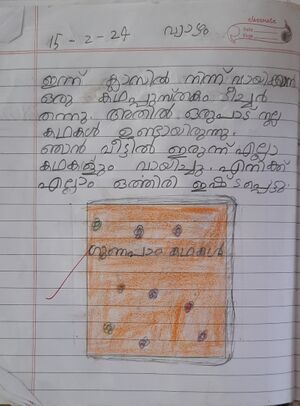 classmate
Date
Page
15-2-24 വ്യാഴം
ഇന്ന് ക്ലാസിൽ നിന്ന് വായിക്കാൻ
ഒരു കഥപ്പുസ്തകം ടീച്ചർ
തന്നു. അതിൽ ഒരുപാട് നല്ല
കഥകൾ ഉണ്ടായിരുന്നു.
ഞാൻ വീട്ടിൽ ഇരുന്ന് എല്ലാ
കഥകളും വായിച്ചു. എനിക്ക്
എല്ലാം ഒത്തിരി ഇഷ്ടപ്പെട്ടു.
ഗുണപാഠ കഥകൾ